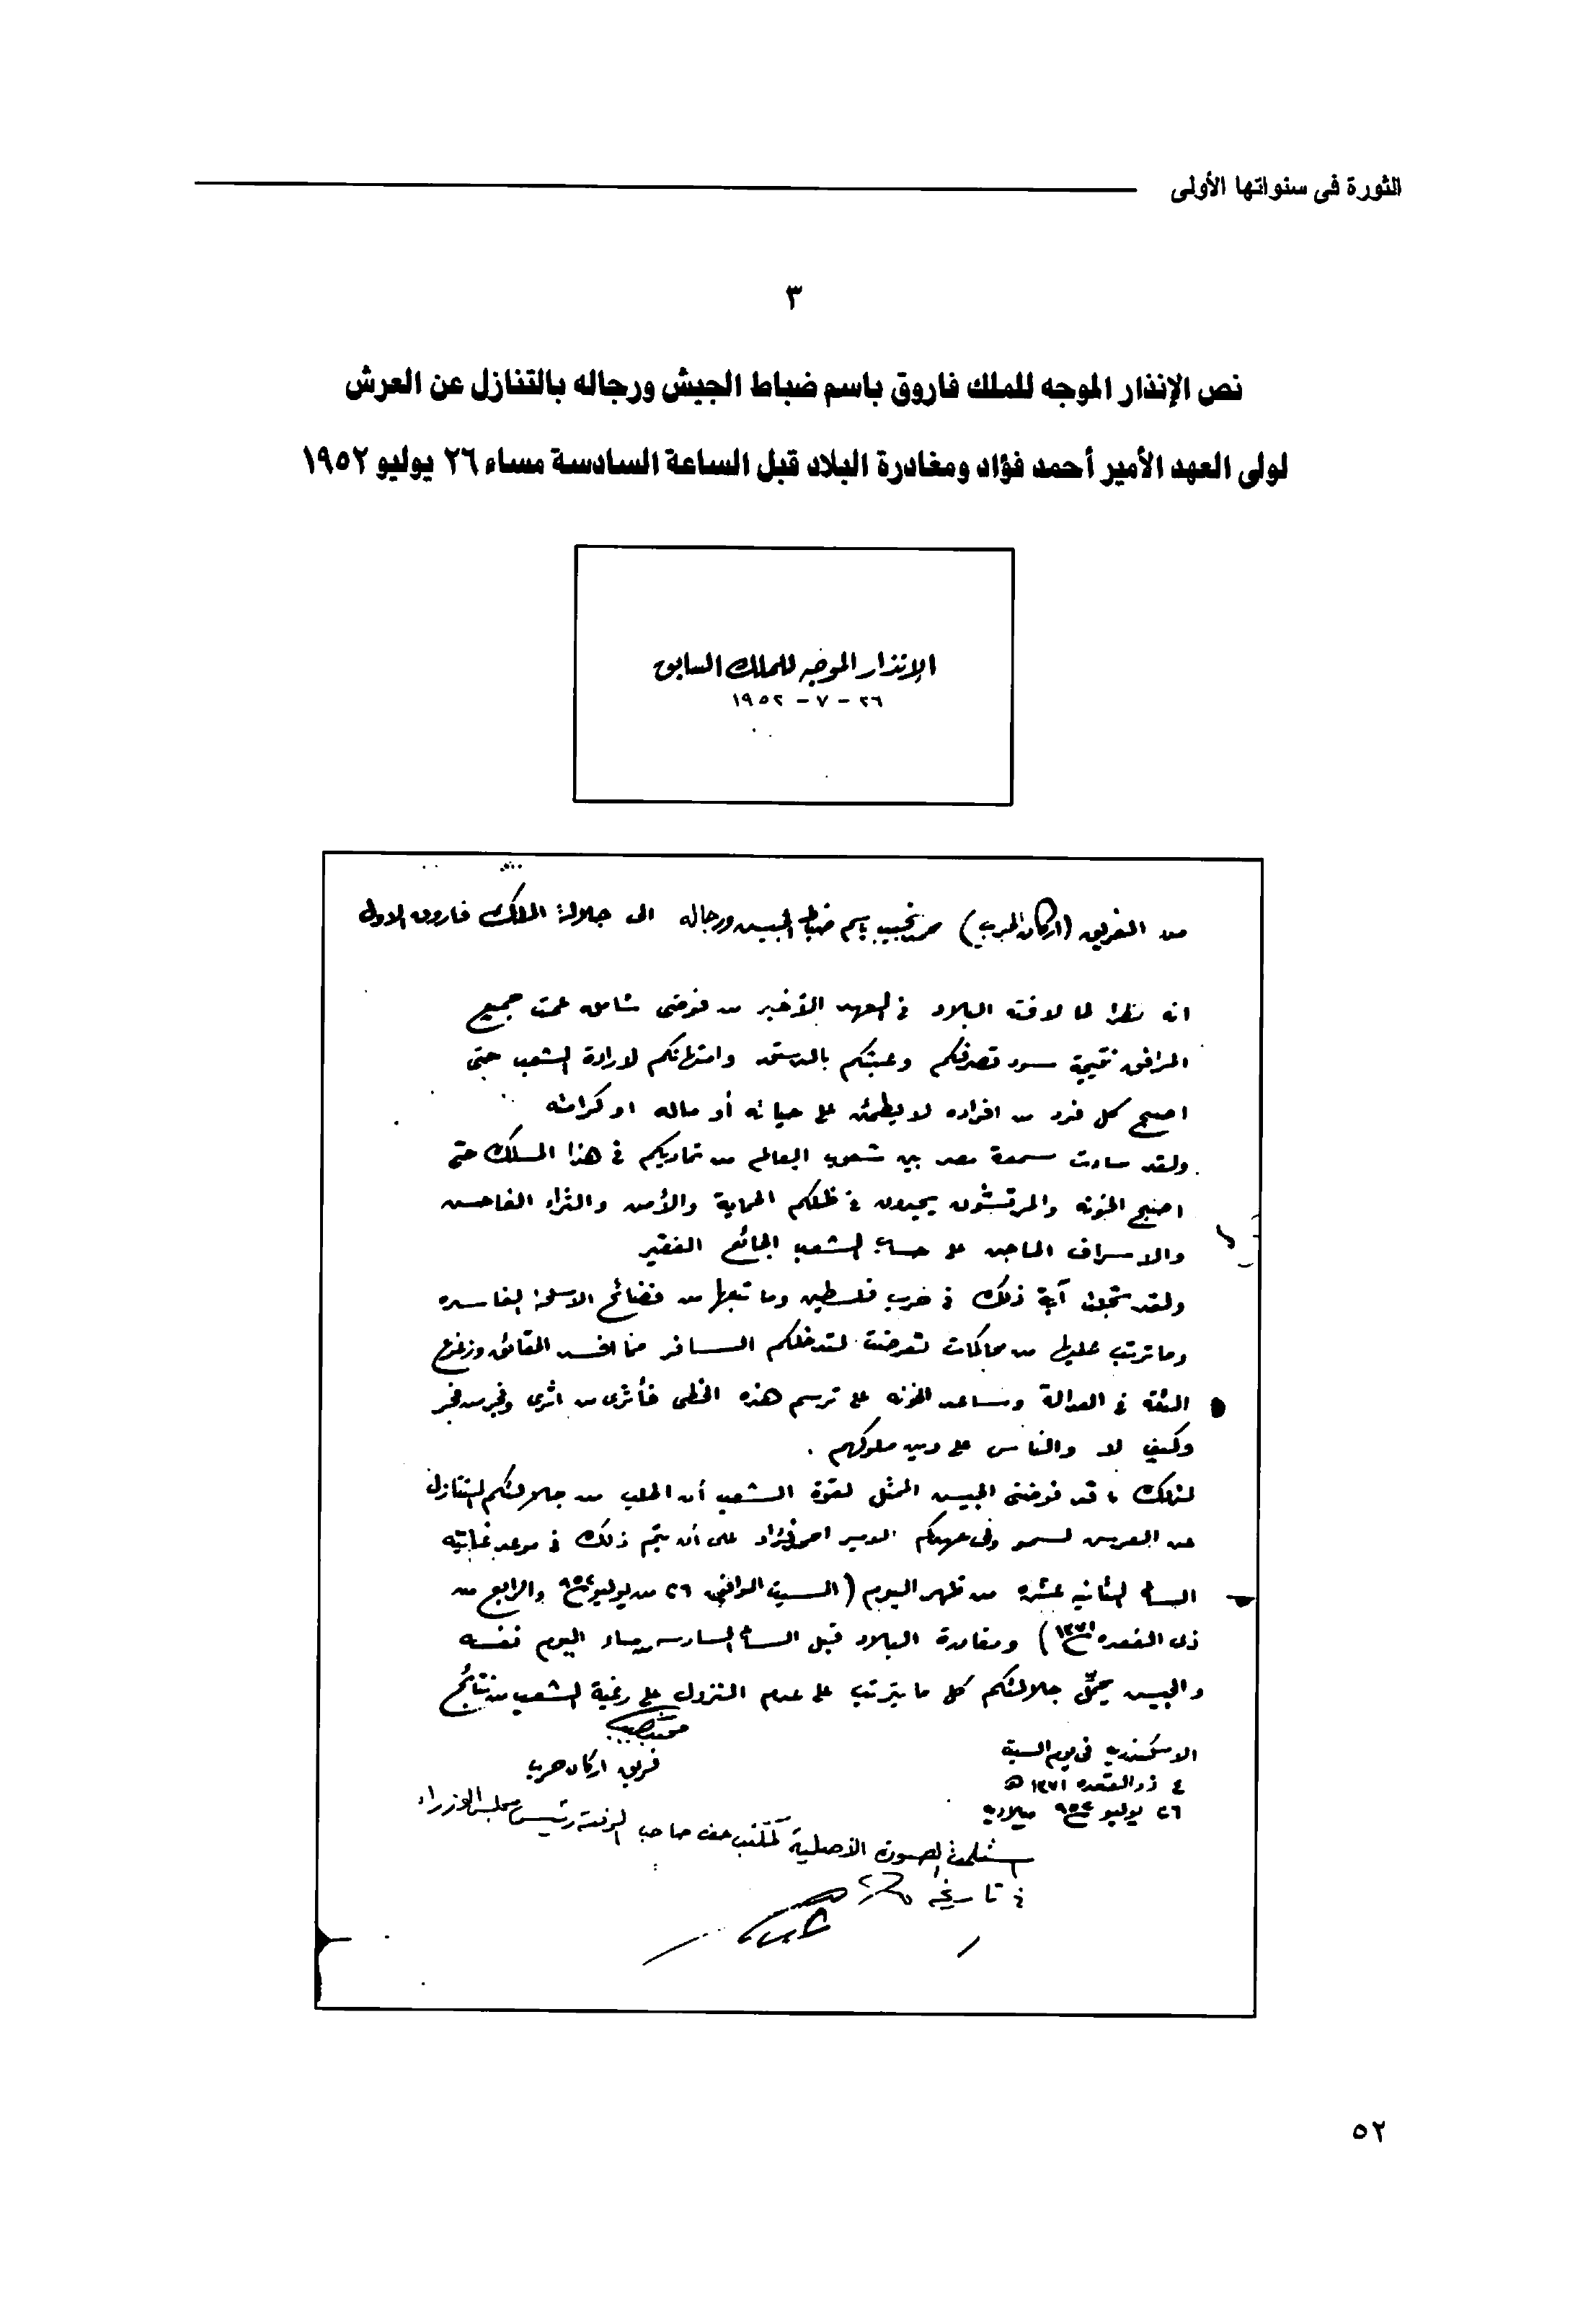 الثورة فى سنواتها الأولى
٣
نص الإنذار الموجه للملك فاروق باسم ضباط الجيش ورجاله بالتنازل عن العرش
لولى العهد الأمير أحمد فؤاد ومغادرة البلاد قبل الساعة السادسة مساء ٢٦ يوليو ١٩٥٢
الإنذار الموجه للملك السابق
٢٦ - ٧ - ١٩٥٢
من الفريق (اركان الحرب) محمد نجيب باسم ضباط الجيش ورجاله الى جلالة الملك فاروق الاول
انه نظرا لما لاقته البلاد فى العهد الأخير من فوضى شامله عمت جميع
المرافق نتيجة سوء تصرفكم وعبثكم بالدستور وامتهانكم لارادة الشعب حتى
اصبح كل فرد من افراده لا يطمئن على حياته أو ماله او كرامته
ولقد ساءت سمعة مصر بين شعوب العالم من تماديكم فى هذا المسلك حتى
اصبح الخونه والمرتشون يجدون فى ظلكم الحماية والأمن والثراء الفاحش
والاسراف الماجن على حساب الشعب الجائع الفقير
ولقد تجلت آية ذلك فى حرب فلسطين وما تبعها من فضائح الاسلحة الفاسده
وما ترتب عليها من محاكمات تعرضت لتدخلكم السافر مما افسد الحقائق وزعزع
الثقه فى العدالة وساعد الخونه على ترسم هذه الخطى فأثرى من اثرى وفجر من فجر
وكيف لا والناس على دين ملوكهم .
لذلك قد فوضنى الجيش الممثل لقوة الشعب أن اطلب من جلالتكم التنازل
عن العرش لسمو ولى عهدكم الامير احمد فؤاد على أن يتم ذلك فى موعد غايته
الساعة الثانيه عشره من ظهر اليوم (السبت الموافق ٢٦ من يوليو ١٩٥٢ والرابع من
ذى القعده ١٣٧١) ومغادرة البلاد قبل الساعة السادسه من مساء اليوم نفسه
والجيش يحمّل جلالتكم كل ما يترتب على عدم النزول على رغبة الشعب من نتائج
محمد نجيب
فريق اركان حرب
الاسكندريه فى يوم السبت
٤ ذو القعده ١٣٧١ هـ
٢٦ يوليو ١٩٥٢ ميلاديه
استلمت الصورة الأصلية لمكتب حضرة صاحب الرفعة رئيس مجلس الوزراء
فى تاريخه
٥٢